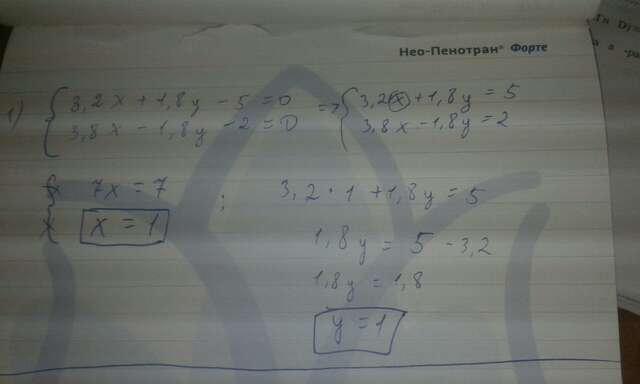 Нео-Пенотран® Форте
1) { 3,2x + 1,8y - 5 = 0 => { 3,2x + 1,8y = 5
3,8x - 1,8y - 2 = 0 3,8x - 1,8y = 2
7x = 7 ; 3,2 · 1 + 1,8y = 5
x = 1
1,8y = 5 - 3,2
1,8y = 1,8
y = 1